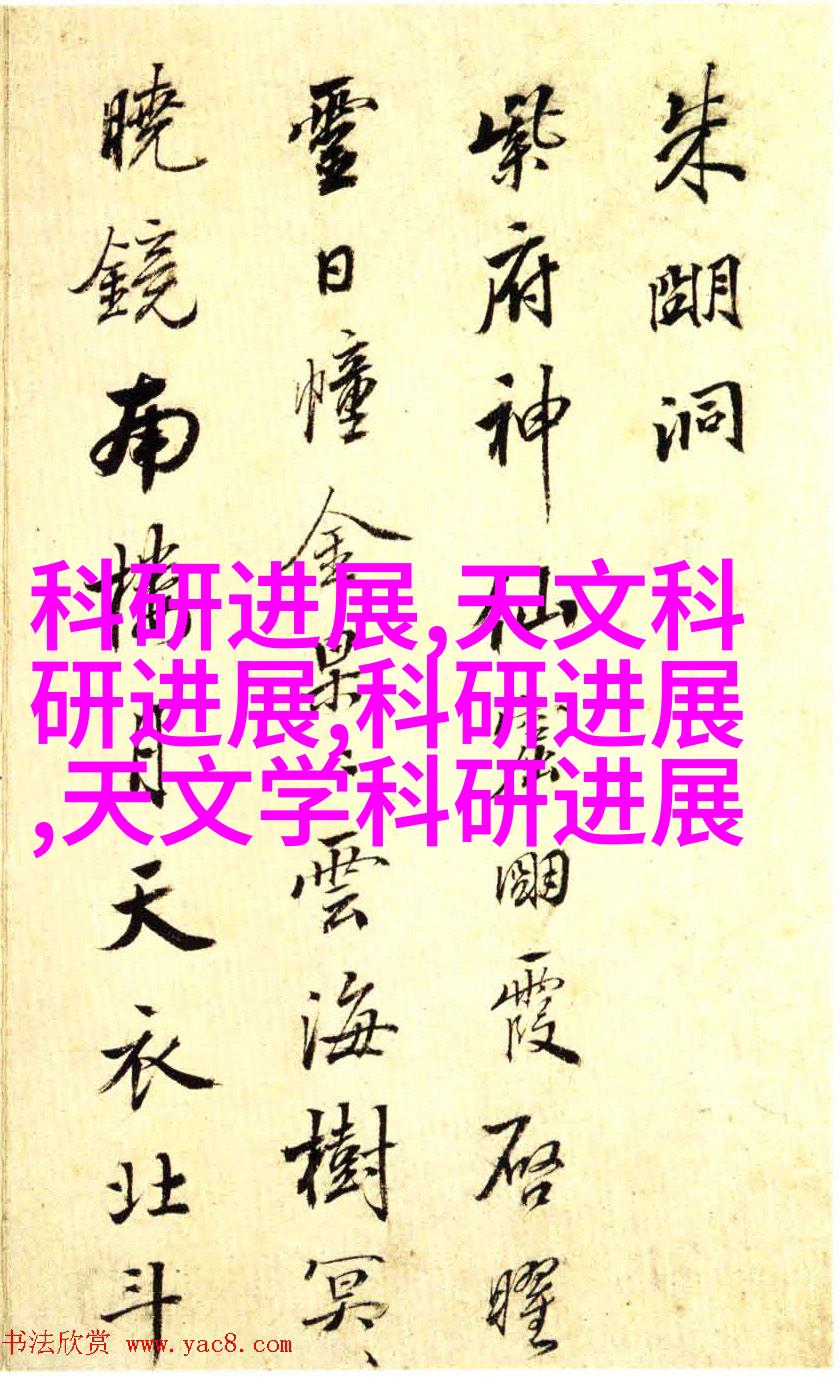 朱朙洞
紫府神仙窟朙霞啓曜
靈日幢金杲〻雲海樹冥〻
曉鏡南月天衣北斗
科研进展,天文科
研进展,科研进展
,天文学科研进展
书法欣赏 www.yac8.com